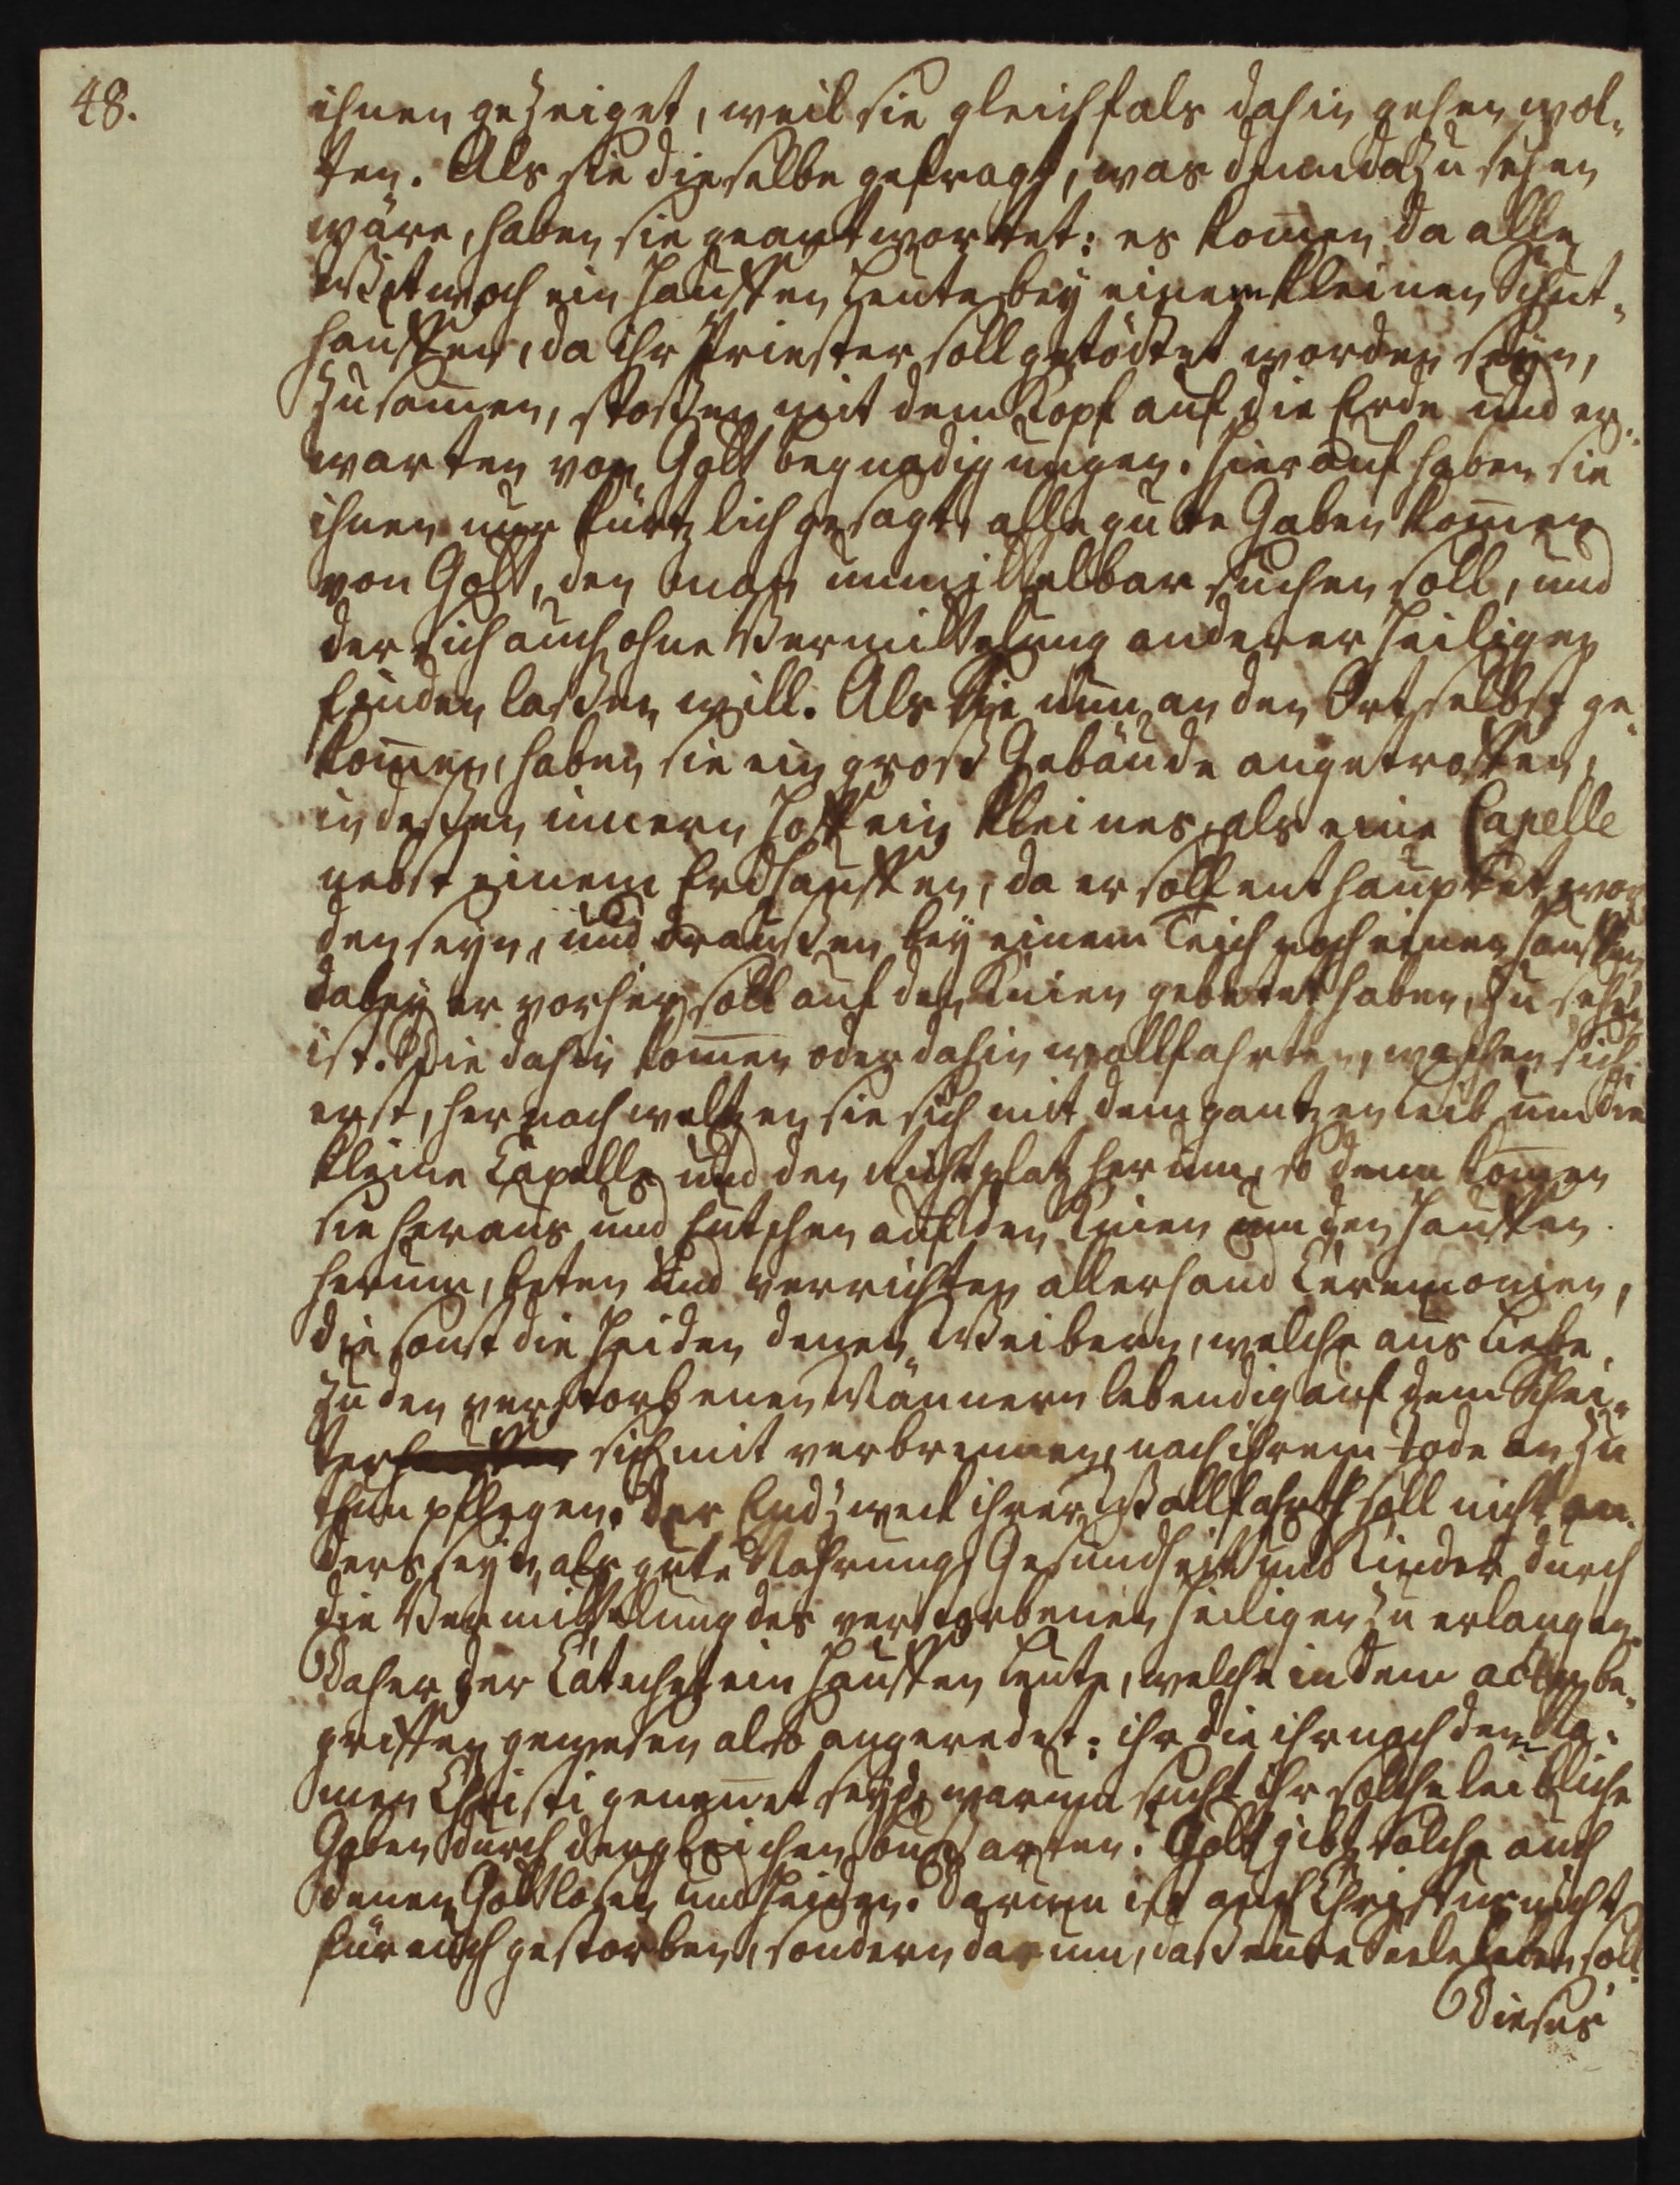 48.
ihnen gezeiget, weil sie gleichfals dahin gehen wol„
ten. Als sie dieselbe gefragt, was denn da zu sehen
wäre, haben sie geantwortet: es kom̅en da alle
Mitwoch ein Hauffen Leute bey einem kleinen Schut„
hauffen, da ihr Priester soll getödtet worden seyn,
zusam̅en, stoßen mit dem Kopf auf die Erde und er„
warten von Gott begnadigungen. Hierauf haben sie
ihnen nur kürtzlich gesagt, alle gute Gaben kom̅en
von Gott, den man unmittelbar suchen soll, und
der sich auch ohne Vermittelung anderer Heiligen
finden laßen will. Als sie nun an den Ort selbst ge„
kom̅en, haben sie ein groß Gebäude angetroffen,
in deßen innern Hoff ein kleines, als eine Capelle
nebst einem Erdhauffen, da er soll enthauptet wor
den seyn, und draußen bey einem Teich noch einen Hauffen
dabey er vorher soll auf den Knien gebetet haben, zu sehen
ist. Die dahin kom̅en oder dahin wallfahrten, waschen sich
erst, hernach weltzen sie sich mit dem gantzen Leib um die
kleine Capelle und den Richtplatz herum, so denn kom̅en
sie heraus und hutschen auf den Knien um den Hauffen
herum, beten und verrichten allerhand Ceremonien,
die sonst die Heiden denen Weibern, welche aus Liebe
zu den verstorbenen Männern lebendig auf dem Schei„
ter sich mit verbrennen, nach ihrem Tode an zu
thun pflegen. Der Endzweck ihrer Wallfahrth soll nicht an„
ders seyn, als gute Nahrung, Gesundheit und Kinder durch
die Vermittelung des verstorbenen Heiligen zu erlangen.
Daher der Catechet ein Hauffen Leute, welche in dem actu be„
griffen gewesen also angeredet: ihr die ihr nach dem Na„
men Christi genen̅et seyd, warum sucht ihr solche leibliche
Gaben durch dergleichen buß arten. Gott gibt solche auch
denen Gottlosen und Heiden. Darum ist auch Christus nicht
für euch gestorben, sondern darum, daß eure Seele leben soll.
Dieses